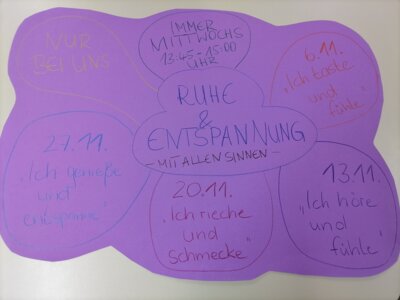 NUR
BEI UNS
IMMER
MITTWOCHS
13:45 - 15:00
UHR
RUHE
&
ENTSPANNUNG
- MIT ALLEN SINNEN -
6.11.
"Ich taste
und
fühle"
13.11.
"Ich höre
und
fühle"
20.11.
"Ich rieche
und
schmecke"
27.11.
"Ich genieße
und
entspanne"